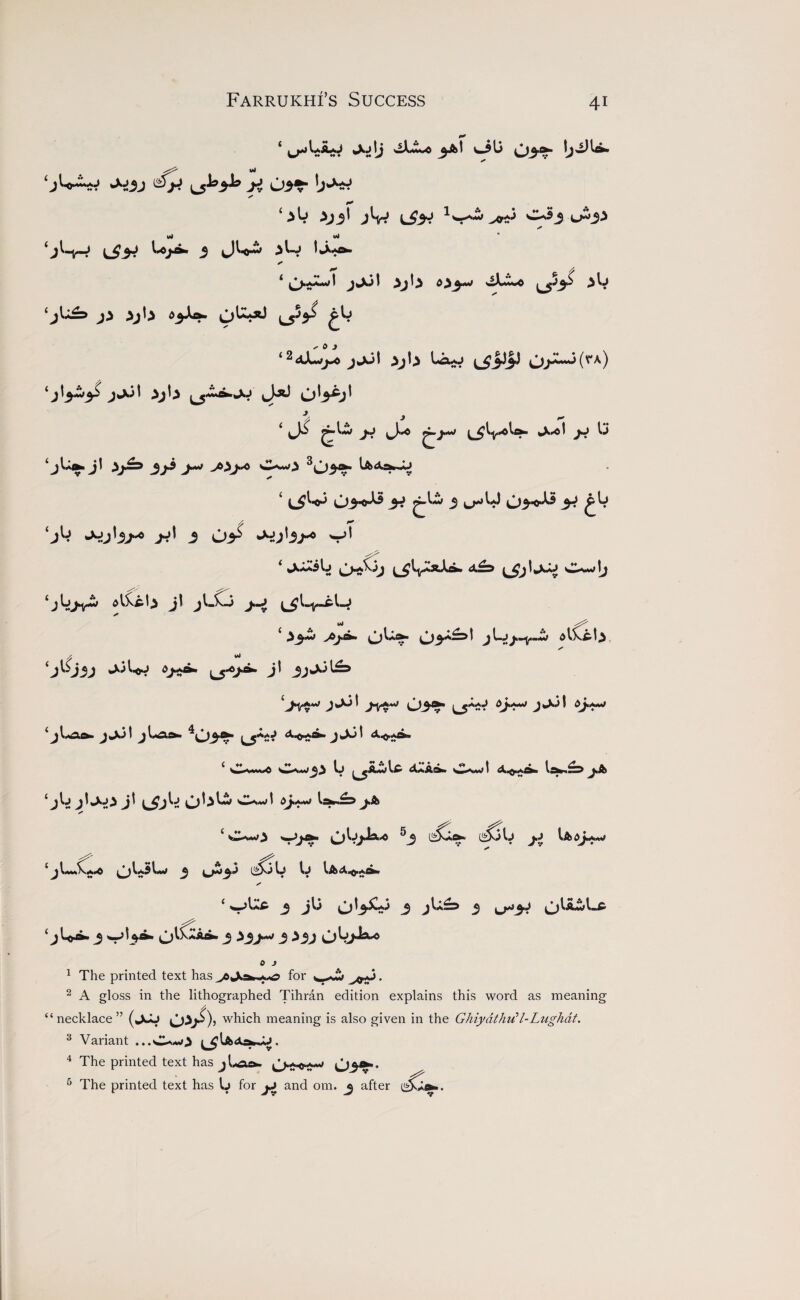 FARRUKHÍ'S SUCCESS 41
خاک را چون ناف آهو مشک زاید بیقیاس ‘
بید را چون پرّ طوطی برگ روید بیشمار ‘
دوش وقت نیم شب¹ بوی بهار آورد باد ‘
حبّذا باد شمال و خرّما بوی بهار ‘
باد گوئی مشک سوده دارد اندر آستین ‘
باغ گوئی لعبتان جلوه دارد در کنار ‘
(۲۸) نسترن لؤلؤی بیضا دارد اندر مُرْسَله² ‘
ارغوان لعل بدخشی دارد اندر گوشوار ‘
تا بر آمد جامهای سرخ مُل بر شاخ گُل ‘
پنجه‌ها چون³ دست مردم سر فرو کرد از چنار ‘
باغ بو قلمون لباس و شاخ بو قلمون نمای ‘
آب مروارید گون و ابر مروارید بار ‘
راست پنداری که خلعتهای رنگین یافتند ‘
باغهای پر نگار از داغگاه شهریار ‘
داغگاه شهریار اکنون چنان خرّم شود ‘
کاندرو از خرّمی خیره بماند روزگار ‘
سبزه اندر سبزه بینی چون سپهر اندر سپهر ‘
خیمه اندر خیمه بینی چون⁴ حصار اندر حصار ‘
هر کجا خیمه است خفته عاشقی با دوست مست ‘
هر کجا سبزه است شادان یاری از دیدار یار ‘
سبزه‌ها پر بانگ چنگ و⁵ مطربان چرب دست ‘
خیمه‌ها با بانگ نوش و ساقیان میگسار ‘
عاشقان بوس و کنار و نیکوان ناز و عتاب ‘
مطربان رود و سرود و خفتگان خواب و خمار ‘
¹ The printed text has صُبحدَم for نیم شب.
² A gloss in the lithographed Tihrán edition explains this word as meaning
“necklace” (گردن بند), which meaning is also given in the Ghiyáthu'l-Lughát.
³ Variant ...پنجه‌های دست.
⁴ The printed text has چون سیمین حصار.
⁵ The printed text has با for پر and om. و after چنگ.